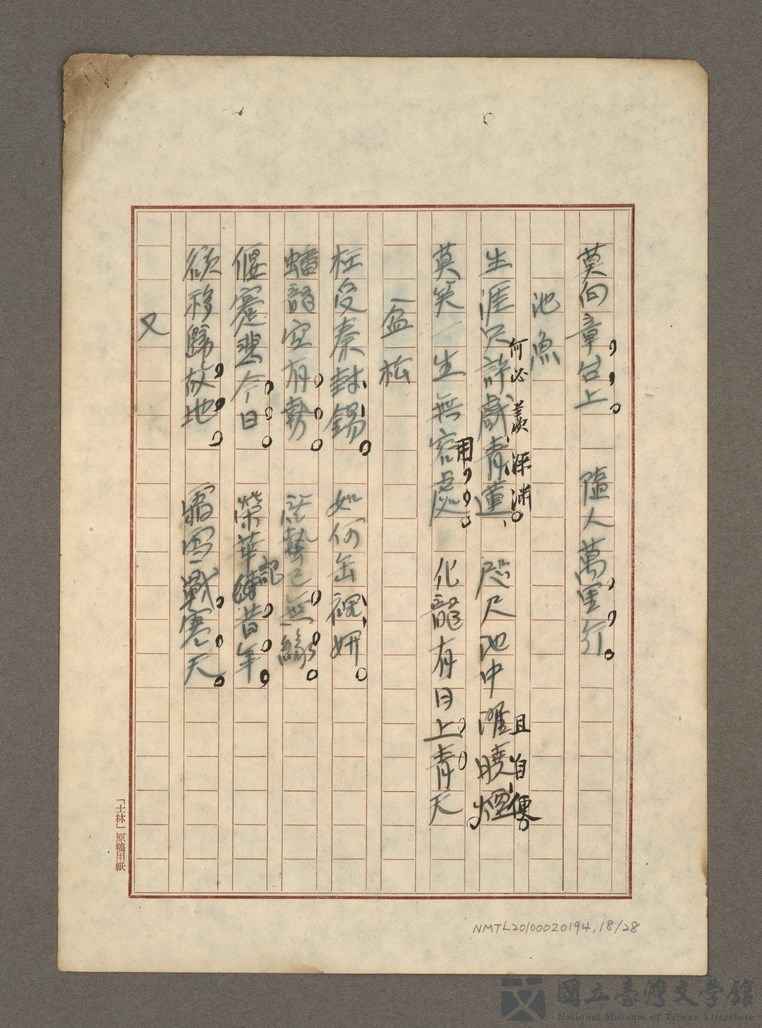 莫向章台上 隨人萬里行
池魚
生涯只許戲青蓮 咫尺池中濯曉煙
何必羨深淵 且自便
莫笑一生無容處 化龍有日上青天
用
盆松
枉受秦封錫 如何缶襯妍
蟠龍空有勢 已無緣
偃蹇悲今日 榮華續昔年
記
欲移歸故地 霜雪戰寒天
又
「士林」原稿用紙
NMTL20100020194,18/28
國立臺灣文學館
National Museum of Taiwan Literature